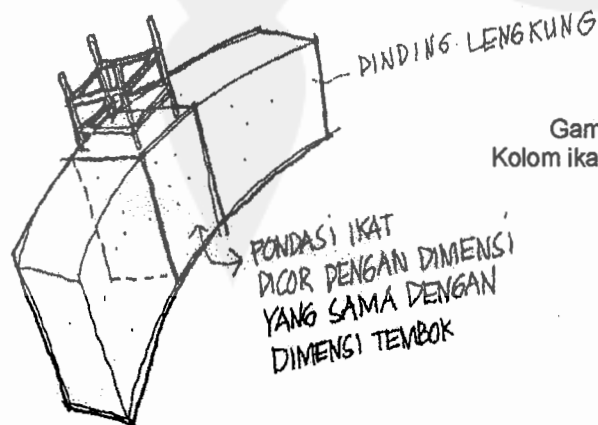 DINDING LENGKUNG
Gam
Kolom ika
PONDASI IKAT
DICOR DENGAN DIMENSI
YANG SAMA DENGAN
DIMENSI TEMBOK